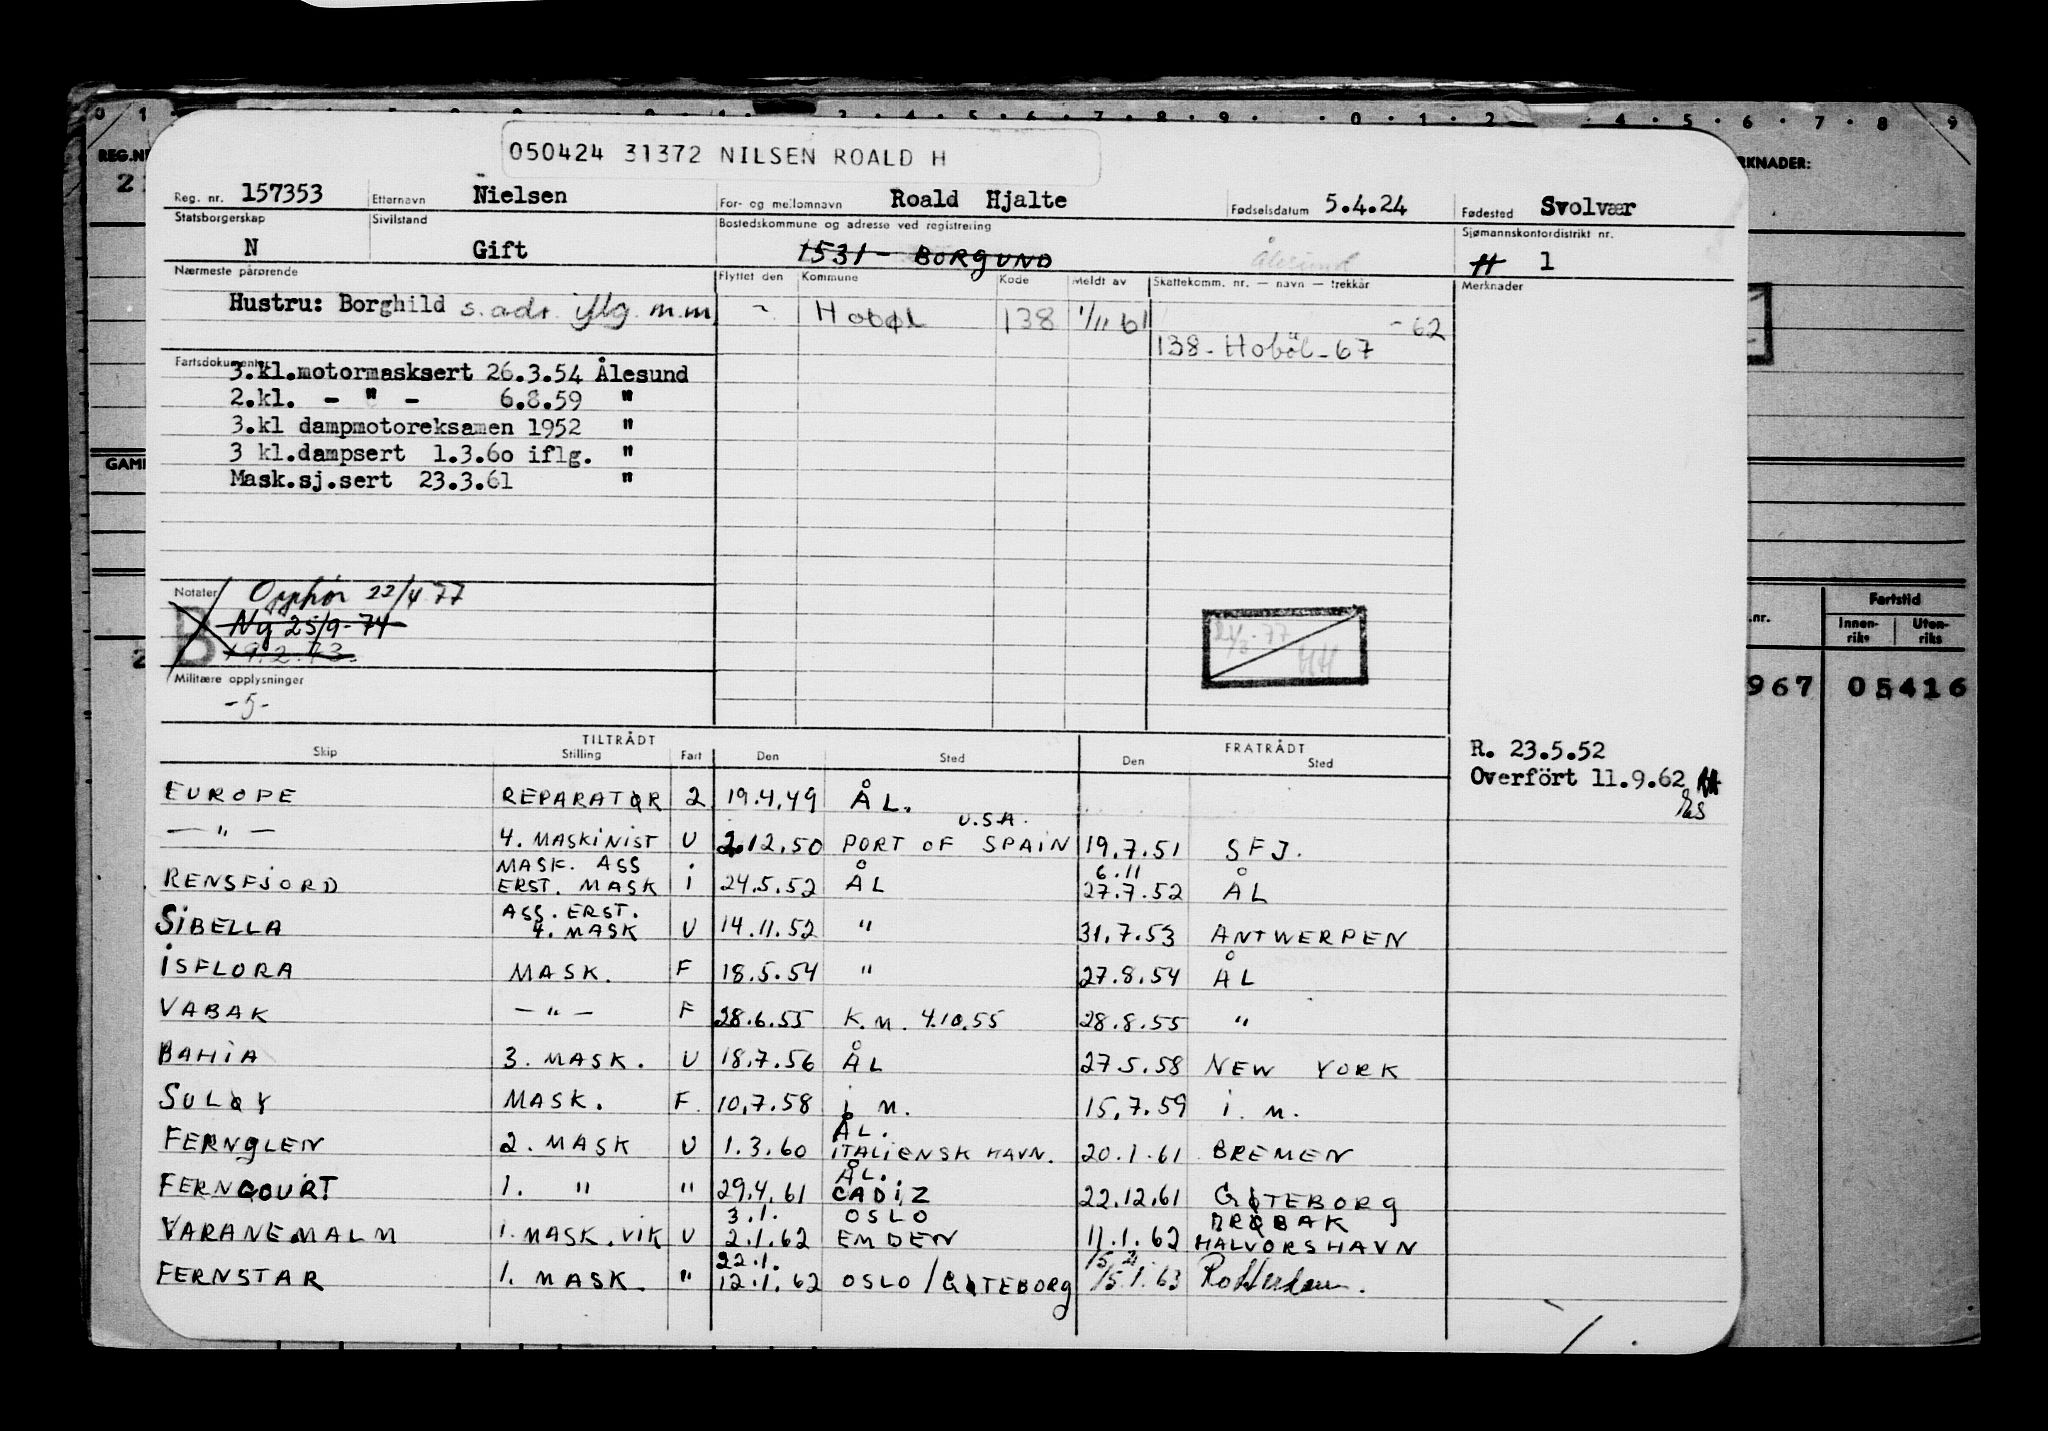 050424 31372 NILSEN ROALD H
Reg. nr. 157353 Etternavn Nielsen For- og mellomnavn Roald Hjalte Fødselsdatum 5.4.24 Fødested Svolvær
Statsborgerskap N Sivilstand Gift Bostedskommune og adresse ved registrering 1531 - BORGUND Ålesund Sjømannskontordistrikt nr. H 1
Nærmeste pårørende Flyttet den Kommune Kode Meldt av Skattekomm. nr. — navn — trekkår Merknader
Hustru: Borghild s. adr. iflg. m.m. Hobøl 138 1/11 61 -62
138 - Hobøl - 67
Fartsdokumenter
3.kl.motormasksert 26.3.54 Ålesund
2.kl. - " - 6.8.59 "
3.kl dampmotoreksamen 1952 "
3 kl.dampsert 1.3.60 iflg. "
Mask.sj.sert 23.3.61 "
Notater Opphør 22/4 77
B Ny 25/9-74
19.2.73.
HH
Militære opplysninger
-5-
TILTRÅDT FRATRÅDT
Skip Stilling Fart Den Sted Den Sted
R. 23.5.52
Overført 11.9.62
EUROPE REPARATØR 2 19.4.49 ÅL.
— " — 4. MASKINIST U 2.12.50 PORT OF SPAIN U.S.A. 19.7.51 SFJ.
RENSFJORD MASK. ASS ERST. MASK i 24.5.52 ÅL 6.11 27.7.52 ÅL
SIBELLA ASS. ERST. 4. MASK U 14.11.52 " 31.7.53 ANTWERPEN
ISFLORA MASK. F 18.5.54 " 27.8.54 ÅL
VABAK — " — F 28.6.55 K.M. 4.10.55 28.8.55 "
BAHIA 3. MASK. U 18.7.56 ÅL 27.5.58 NEW YORK
SULØY MASK. F. 10.7.58 i M. 15.7.59 i. M.
FERNGLEN 2. MASK U 1.3.60 ÅL. ITALIENSK HAVN. 20.1.61 BREMEN
FERNCOURT 1. " " 29.4.61 ÅL. CADIZ 22.12.61 GØTEBORG
VARANEMALM 1. MASK. VIK U 3.1. 2.1.62 OSLO EMDEN 11.1.62 DRØBAK HALVORSHAVN
FERNSTAR 1. MASK. " 22.1. 12.1.62 OSLO / GØTEBORG 15.1.63 Rotterdam.
REG.NR
GAML
RKNADER:
.nr. Fartstid
Innen-riks Uten-riks
967 05416